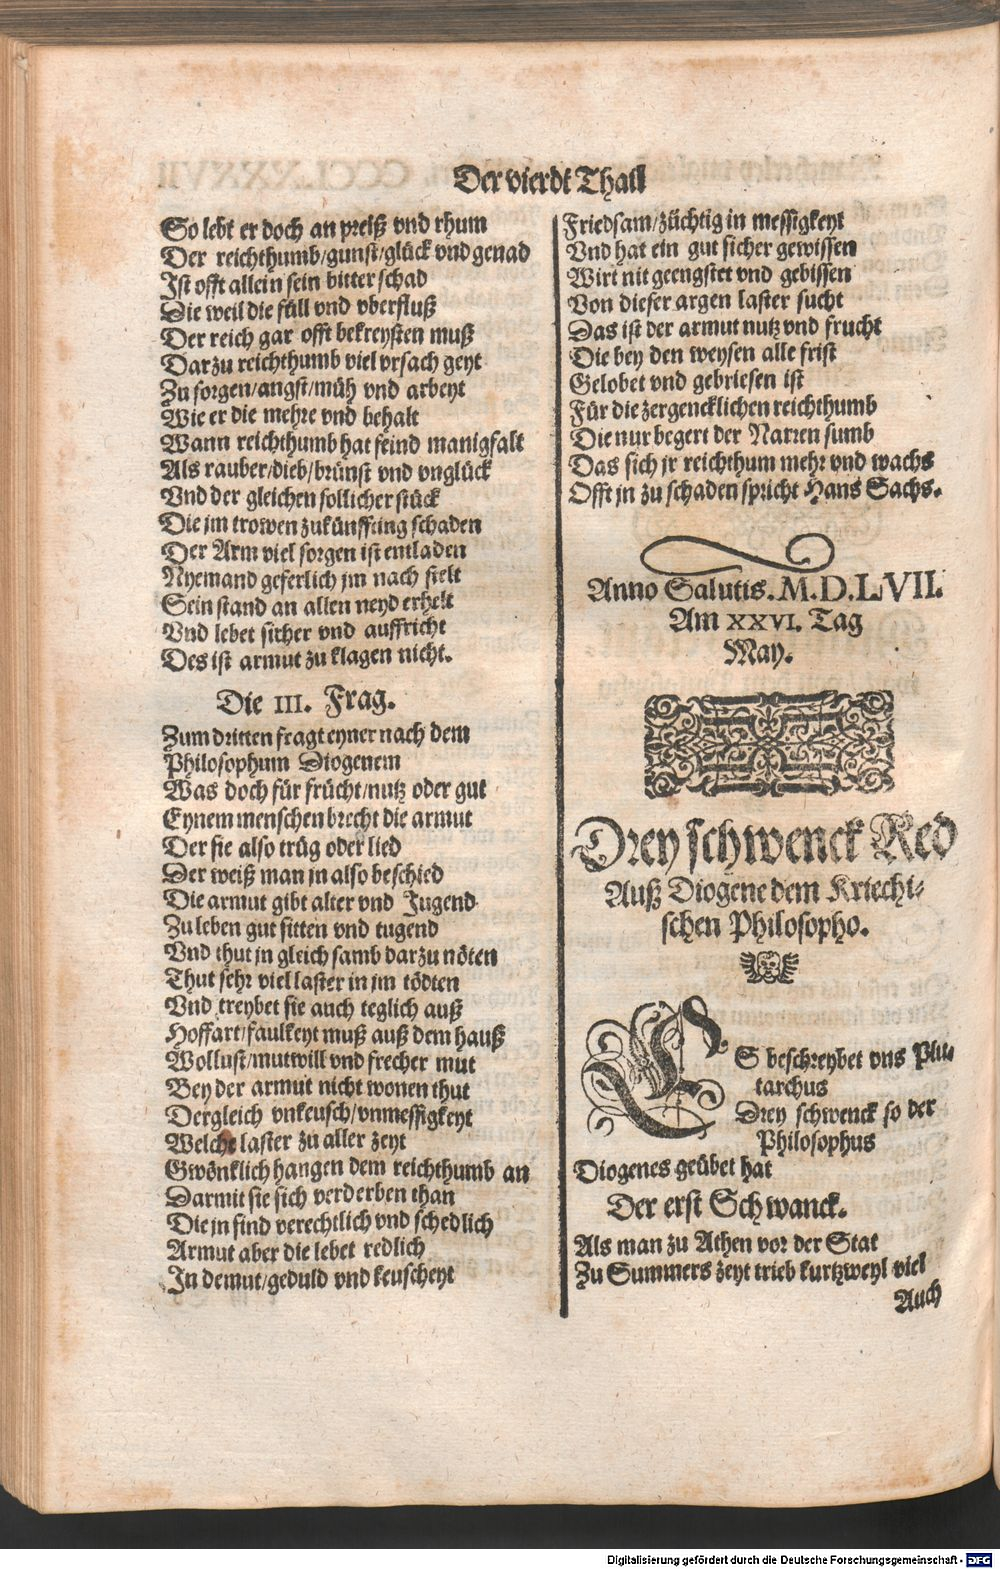 Der vierdt Thail
So lebt er doch an preiß vnd rhum
Der reichthumb/gunst/glück vnd genad
Ist offt allein sein bitter schad
Die weil die füll vnd vberfluß
Der reich gar offt bekreysten muß
Darzu reichthumb viel vrsach geyt
Zu sorgen/angst/müh vnd arbeyt
Wie er die mehre vnd behalt
Wann reichthumb hat feind manigfalt
Als rauber/dieb/brünst vnd vnglück
Vnd der gleichen sollicher stück
Die jm trowen zukünfftig schaden
Der Arm viel sorgen ist entladen
Nyemand geferlich jm nach stelt
Sein stand an allen neyd erhelt
Vnd lebet sicher vnd auffricht
Des ist armut zu klagen nicht.
Die III. Frag.
Zum dritten fragt eyner nach dem
Philosophum Diogenem
Was doch für frücht/nutz oder gut
Eynem menschen brecht die armut
Der sie also trüg oder lied
Der weiß man jn also beschied
Die armut gibt alter vnd Jugend
Zu leben gut sitten vnd tugend
Vnd thut jn gleich samb darzu nöten
Thut sehr viel laster in jm tödten
Vnd treybet sie auch teglich auß
Hoffart/faulkeyt muß auß dem hauß
Wollust/mutwill vnd frecher mut
Bey der armut nicht wonen thut
Dergleich vnkeusch/vnmessigkeyt
Welche laster zu aller zeyt
Gwönklich hangen dem reichthumb an
Darmit sie sich verderben than
Die jn sind verechtlich vnd schedlich
Armut aber die lebet redlich
In demut/geduld vnd keuscheyt
Friedsam/züchtig in messigkeyt
Vnd hat ein gut sicher gewissen
Wirt nit geengstet vnd gebissen
Von dieser argen laster sucht
Das ist der armut nutz vnd frucht
Die bey den weysen alle frist
Gelobet vnd gebriesen ist
Für die zergencklichen reichthumb
Die nur begert der Narren sumb
Das sich jr reichthum mehr vnd wachs
Offt jn zu schaden spricht Hans Sachs.
Anno Salutis. M.D.LVII.
Am XXVI. Tag
May.
Drey schwenck Red
Auß Diogene dem Kriechi-
schen Philosopho.
ES beschreybet vns Plu-
tarchus
Drey schwenck so der
Philosophus
Diogenes geübet hat
Der erst Schwanck.
Als man zu Athen vor der Stat
Zu Summers zeyt trieb kurtzweyl viel
Auch
Digitalisierung gefördert durch die Deutsche Forschungsgemeinschaft - DFG